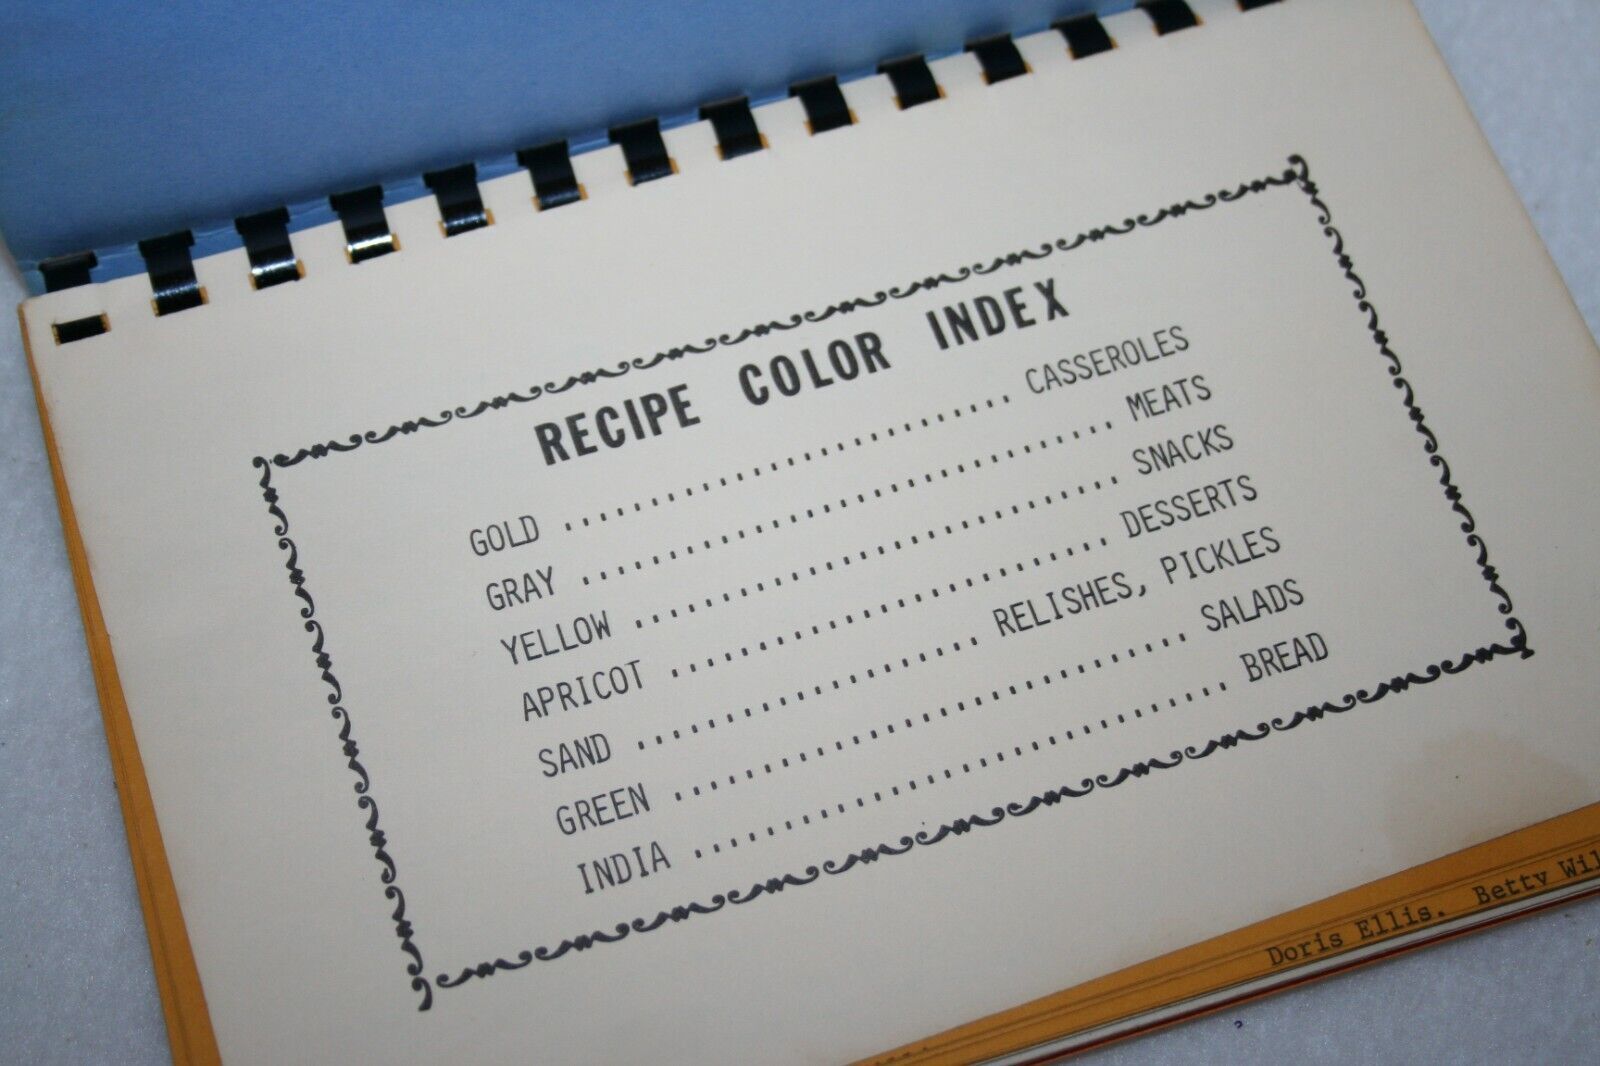 RECIPE COLOR INDEX
GOLD .......................... CASSEROLES
GRAY ............................... MEATS
YELLOW ............................ SNACKS
APRICOT ......................... DESSERTS
SAND .................... RELISHES, PICKLES
GREEN ............................. SALADS
INDIA .............................. BREAD
Doris Ellis. Betty